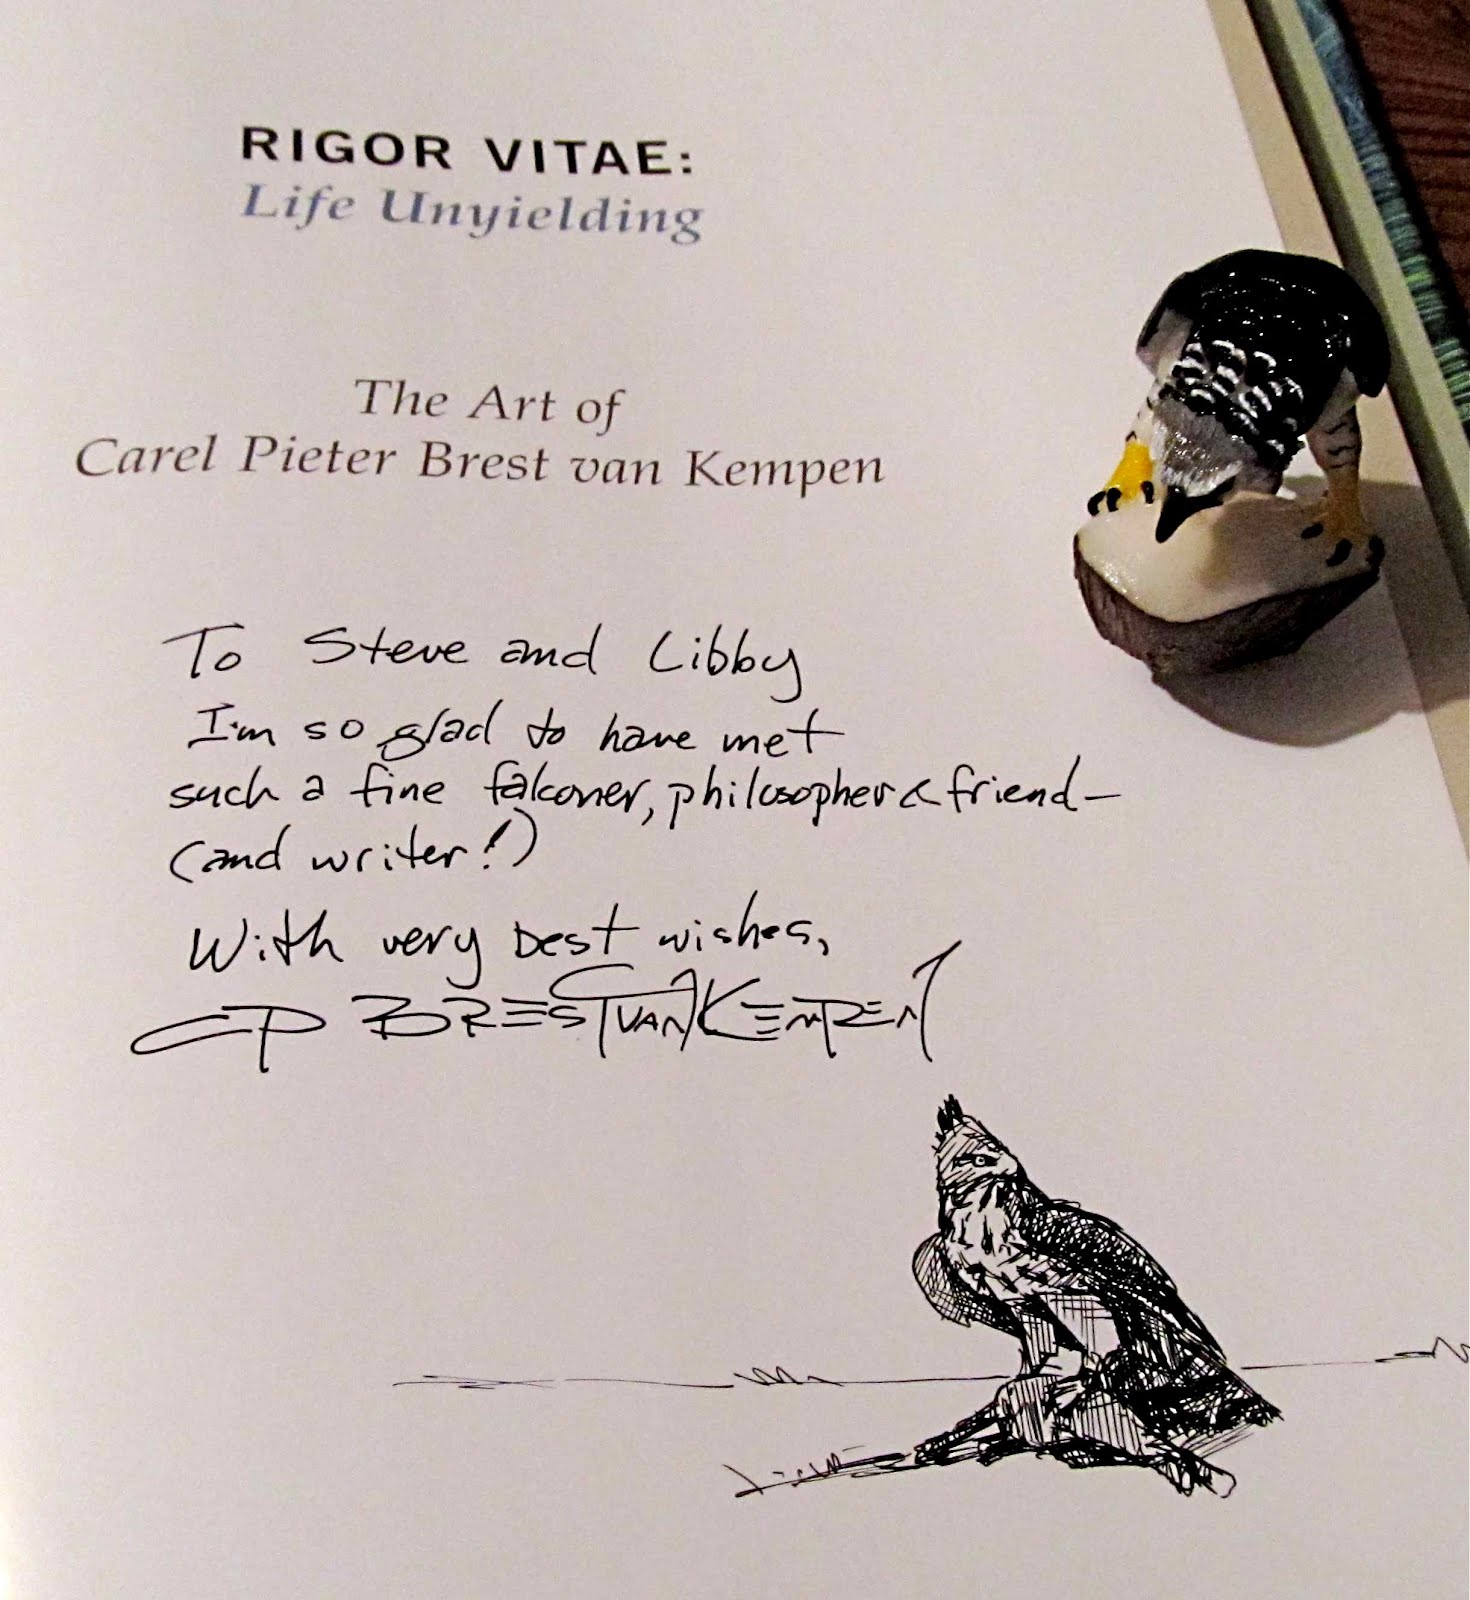 RIGOR VITAE:
Life Unyielding
The Art of
Carel Pieter Brest van Kempen
To Steve and Libby
I'm so glad to have met
such a fine falconer, philosopher & friend—
(and writer!)
With very best wishes,
CP BREST VAN KEMPEN